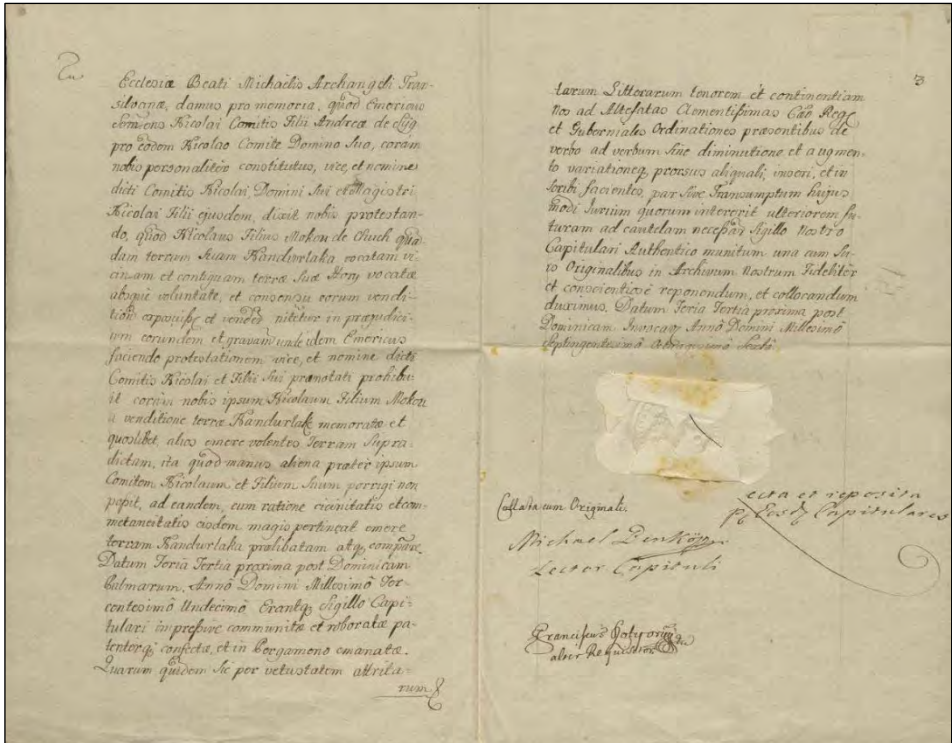 Ecclesiæ Beati Michaelis Archangeli Tran-
silvanæ, damus pro memoria, quod Emericus
Nicolai Comitis Filii Andreæ de
pro eodem Nicolao Comite Domino Suo, coram
nobis personaliter constitutus, vice, et nomine
dicti Comitis Nicolai, Domini Sui et Magistri
Nicolai Filii ejusdem, dixit nobis protestan-
do, quod Nicolaus Filius Mokou de Chuch quan
dam terram Suam Kandurlaka vocatam vi-
cinam et contiguam terræ Suæ vocatæ
absque voluntate, et consensu eorum vendi-
tioni et niteretur in præjudici-
um eorundem et gravam unde idem Emericus
faciendo protestationem vice, et nomine dicti
Comitis Nicolai et Filii Sui prænotati prohibu-
it coram nobis ipsum Nicolaum Filium Mokou
a venditione terræ Kandurlak memoratæ et
quoslibet alios emere volentes Terram Supra-
dictam, ita quod manus aliena præter ipsum
Comitem Nicolaum et Filium Suum porrigi non
possit, ad eandem, cum ratione vicinitatis et com-
metaneitatis eisdem magis pertineat emere
terram Kandurlaka prælibatam atq compare.
Datum Feria Tertia proxima post Dominicam
Palmarum, Annô Domini Millesimô Tre-
centesimô Undecimô Erantq Sigillo Capi-
tulari impressive communitæ et roboratæ pa-
tenterq confectæ, et in Pergameno emanatæ.
Quarum quidem Sic per vetustatem attrita-
rum
tarum Litterarum tenorem et continentiam
Nos ad Altefatas Clementissimas Cæo Regę
et Guberniales Ordinationes præsentibus de
verbo ad verbum Sine diminutione et augmen-
to variationeq prorsus aliquali, inseri, et in
scribi facientes, par Sive Transumptum hujus
modi Jurium quorum intererit ulteriorem fu-
turam ad cautelam necessar Sigillo Nostro
Capitulari Authentico munitum una cum Su-
is Originalibus in Archivum Nostrum Fideliter
et conscientiose reponendum, et collocandum
duximus. Datum Feria Tertia proxima post
Dominicam Invocavq Annô Domini Millesimô
Septingentesimô Sexto.
Collata cum Originali.
ecta et reposita
p Eosd Capitulares
Michael
Lector Capituli
Franciscus
alter Requisitor